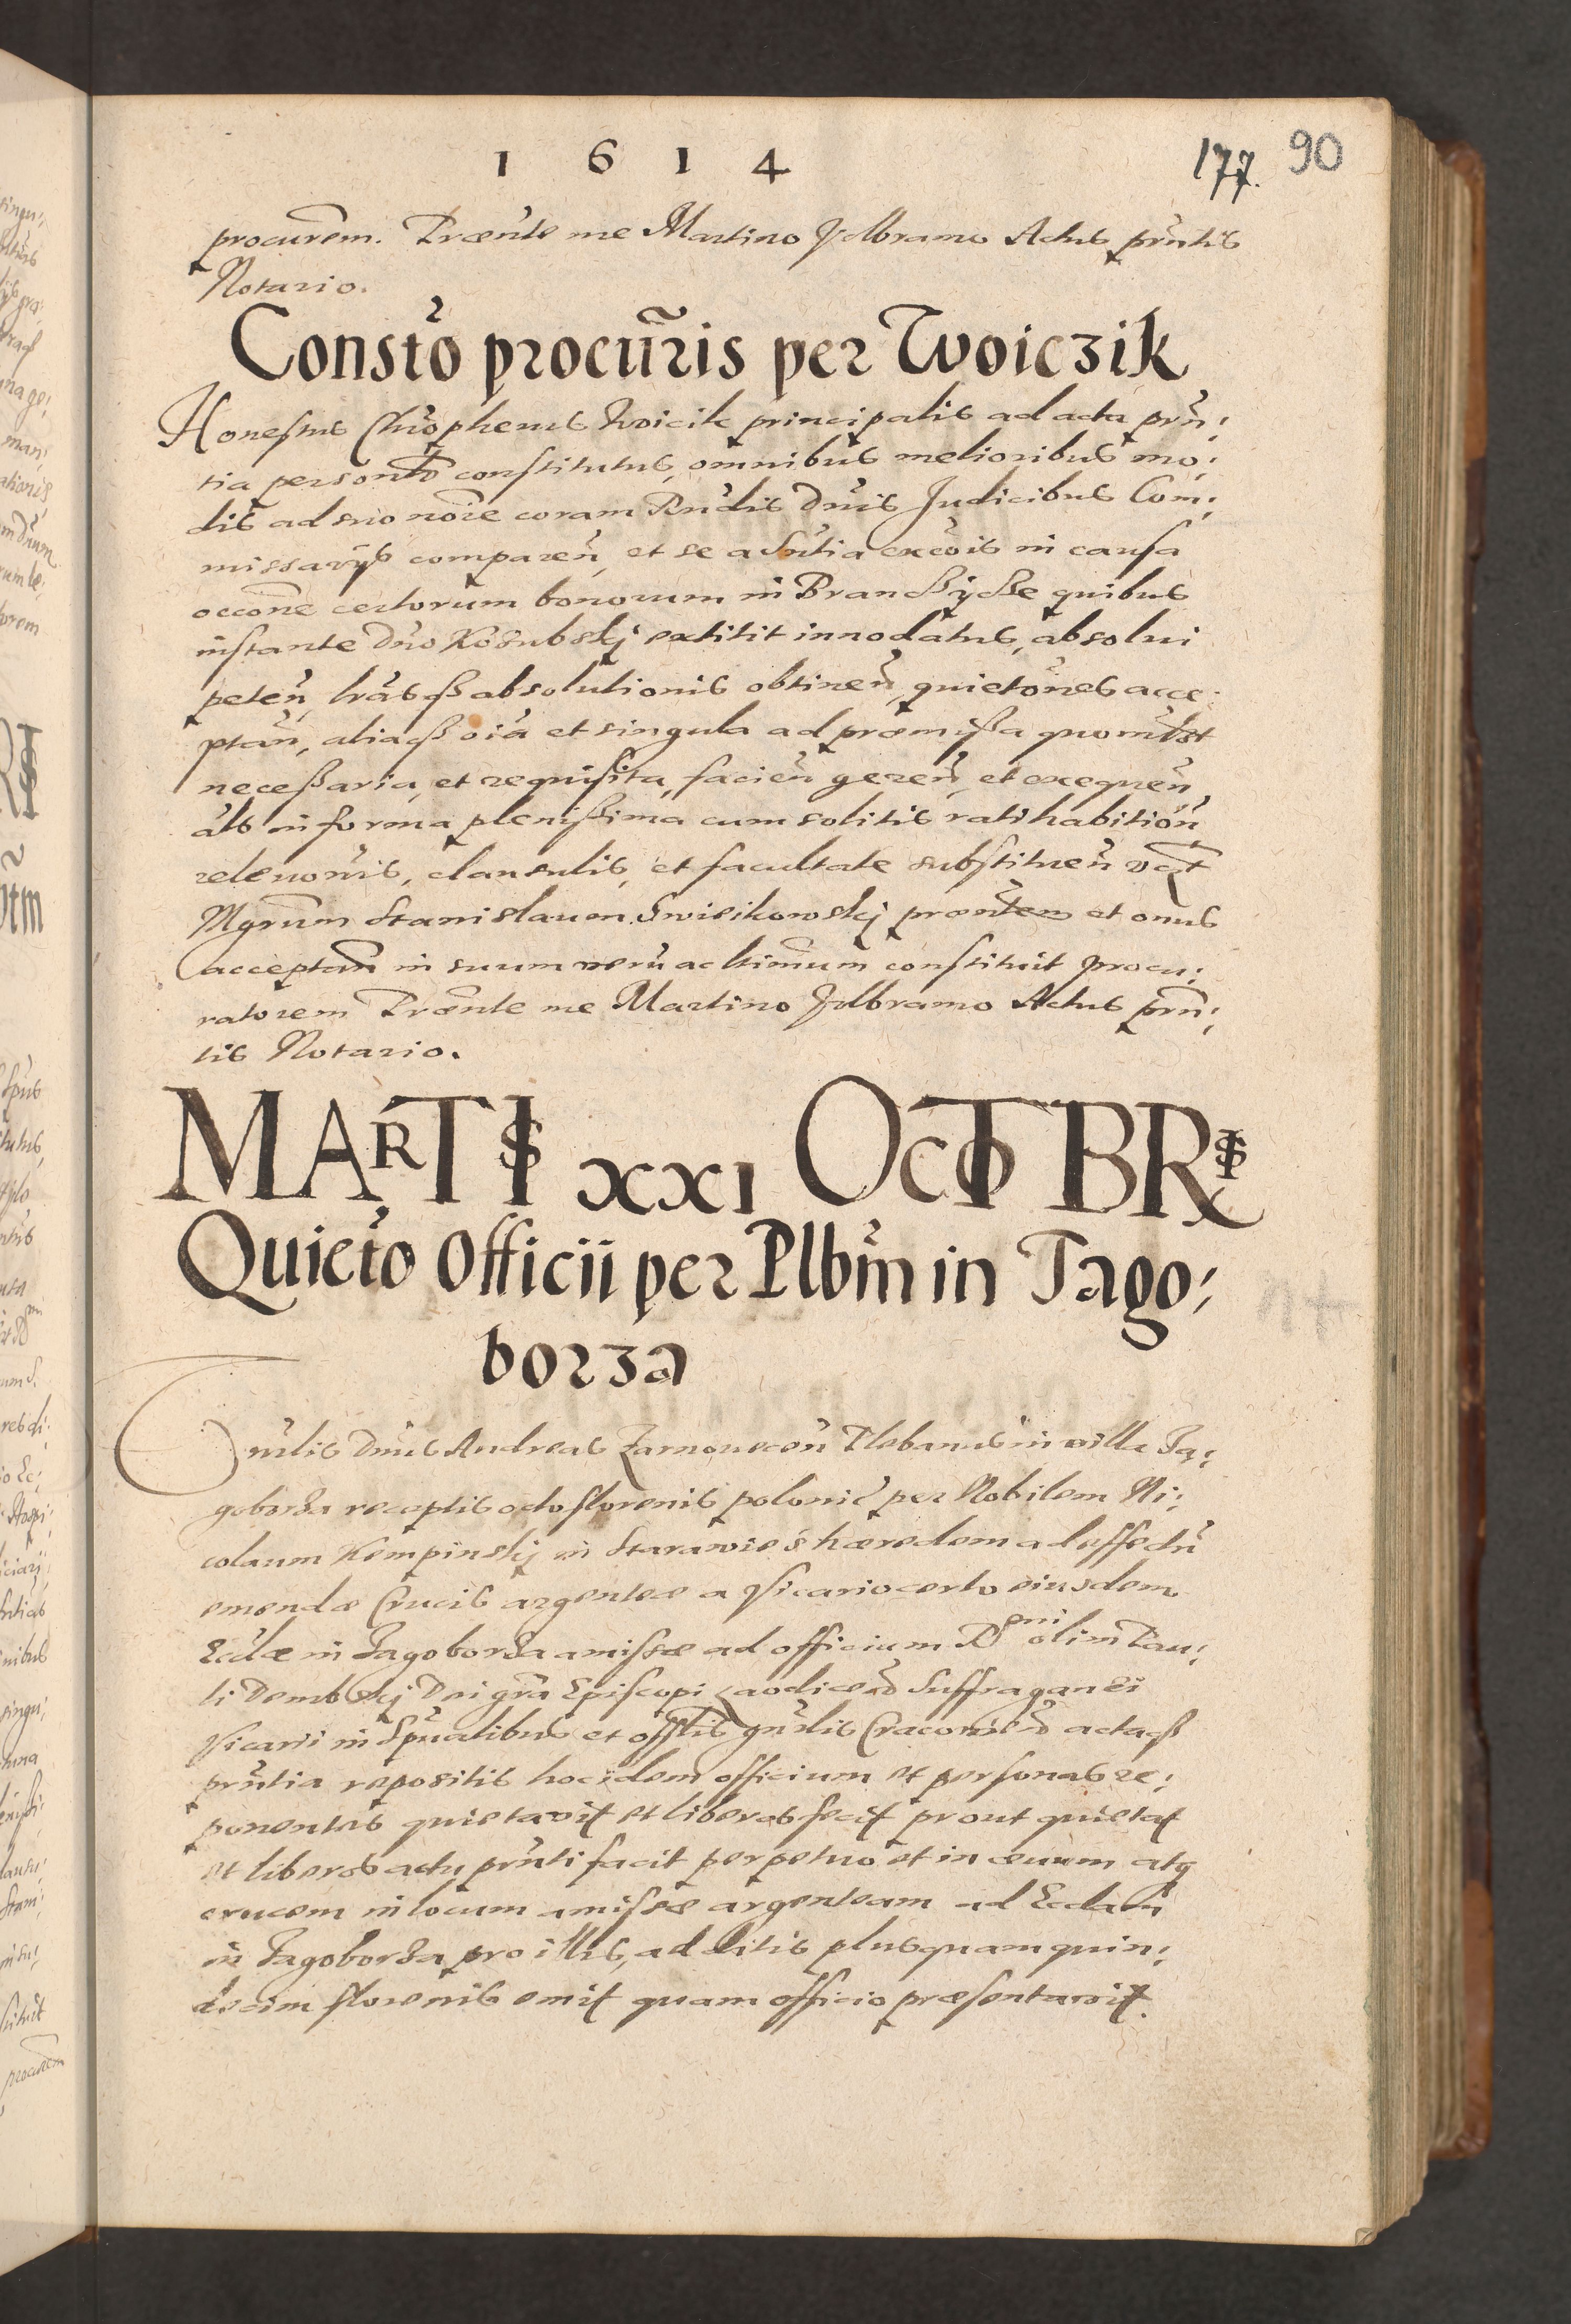 1 6 1 4
177. 90
procurem. Præñte me Martino Volbramo Actus prñtis
Notario.
Constõ procuris per Woiczik
Honestus Chrõphenus Woicik principalis ad acta prñ:
tia personlr constitutus, omnibus melioribus mo:
dis ad suo noĩe coram Rndis Dnis Judicibus Com:
missarys comparen, et se a Sntia excois in causa
occone certorum bonorum in quibus
instante Dno Kosubskj extitit innodatus, absolui
peten, lras absolutionis obtinen, quietones acce:
ptan, oia et singula ad præmissa quomlbt
necessaria, et requisita, facien geren, et exequen,
als in forma plenissima cum solitis ratihabition
releuonis, clausulis, et facultate substituen
Mgrum Stanislaum Swisikowskj præntem et onus
acceptan in suum veru ac ltimum constituit procu:
ratorem Præñte me Martino Volbramo Actus prñ:
tis Notario.
MARTIS XXI OCTOBRIS
Quietõ Officii per Plbm in Jago:
borza
Dnus Andreas Plebanus in villa Ja:
goborza receptis octo florenis per Nobilem Ni:
colaum Kempinskj in Starawieś hæredem ad effectũ
emendæ Crucis argenteæ a Vicario certo eiusdem
Ecclæ in Jagoborza amissæ ad officium Rndmi olim Pau:
li Dembskj Dei gra Episcopi Laodicen Suffraganei
Vicarii in Spualibus et offlis gnrlis Cracouien
prñtia repositis hoc idem officium et personas re:
ponentes quietavit et liberas fecit prout quietat
et liberas actu prñti facit perpetuo et in æuum atq
crucem in locum amissæ argenteam ad Ecclam
in Jagoborza pro illis, additis plusquam quin:
decim florenis emit quam officio præsentavit.